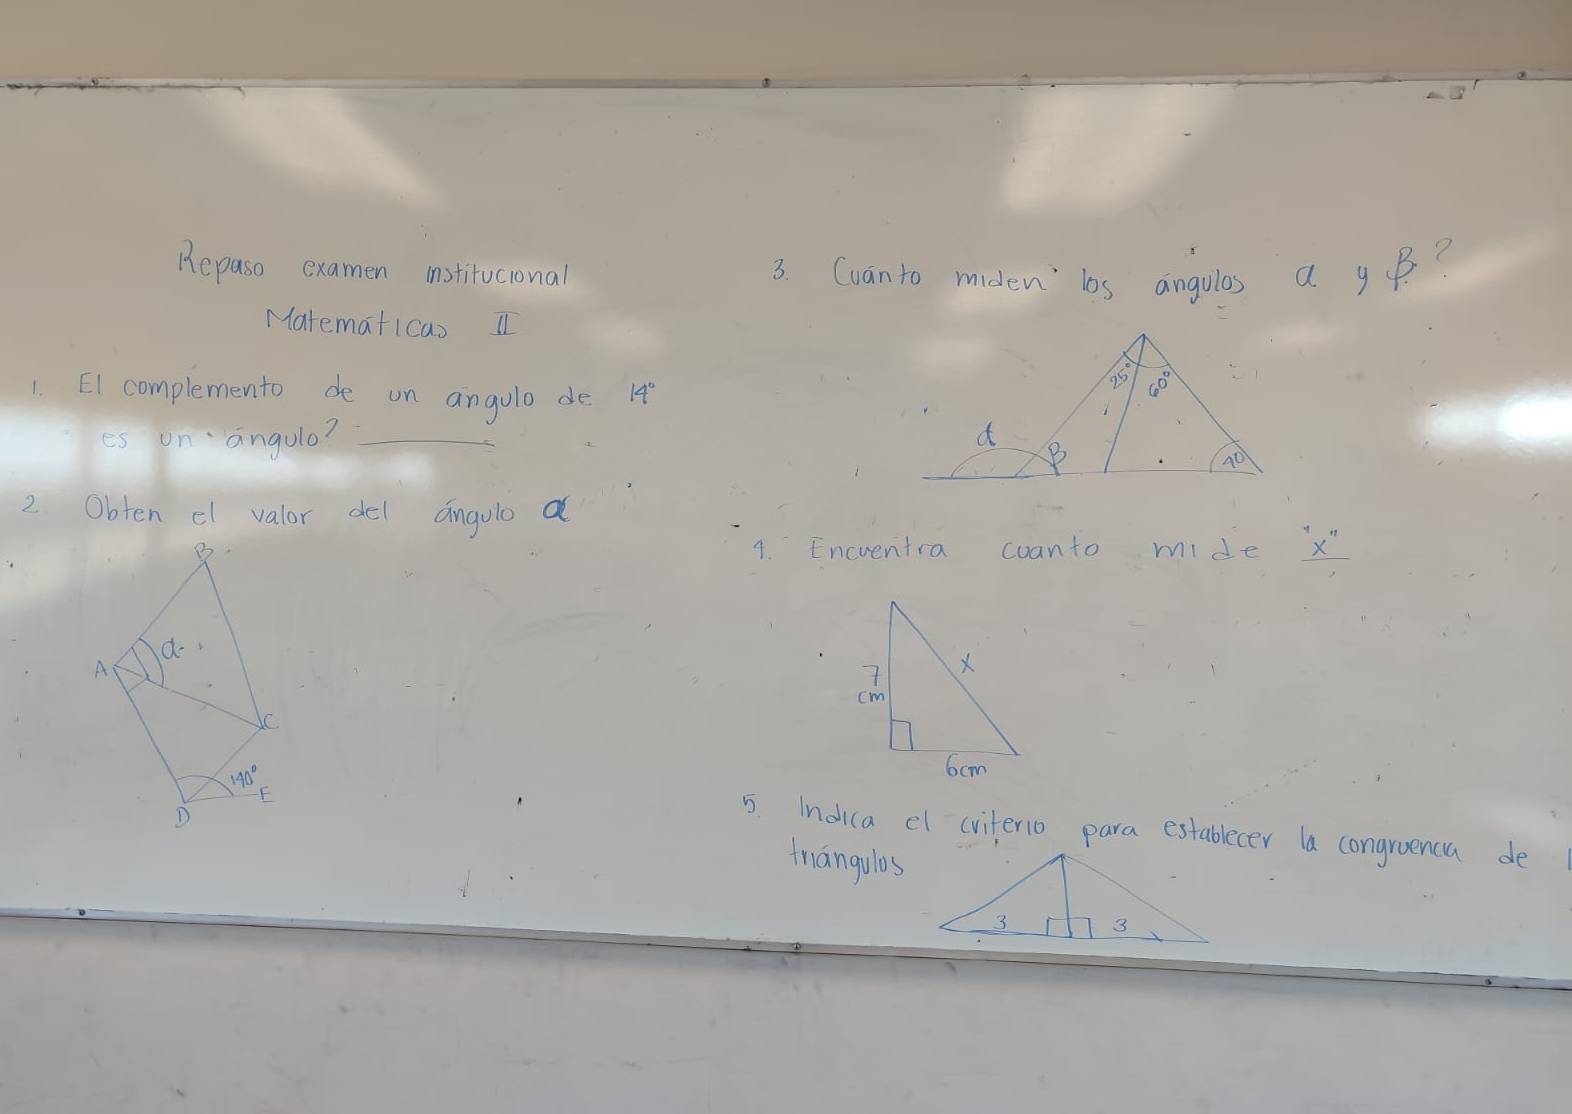 Repaso examen institucional
Matemáticas II
1. El complemento de un ángulo de 14°
es un ángulo?
2. Obten el valor del ángulo α
B
α
A
C
140°
E
D
3. Cuánto miden los ángulos α y β?
25°
60°
α
β
40
4. Encuentra cuanto mide "x"
7
cm
x
6cm
5. Indica el criterio para establecer la congruencia de
triángulos
3
3